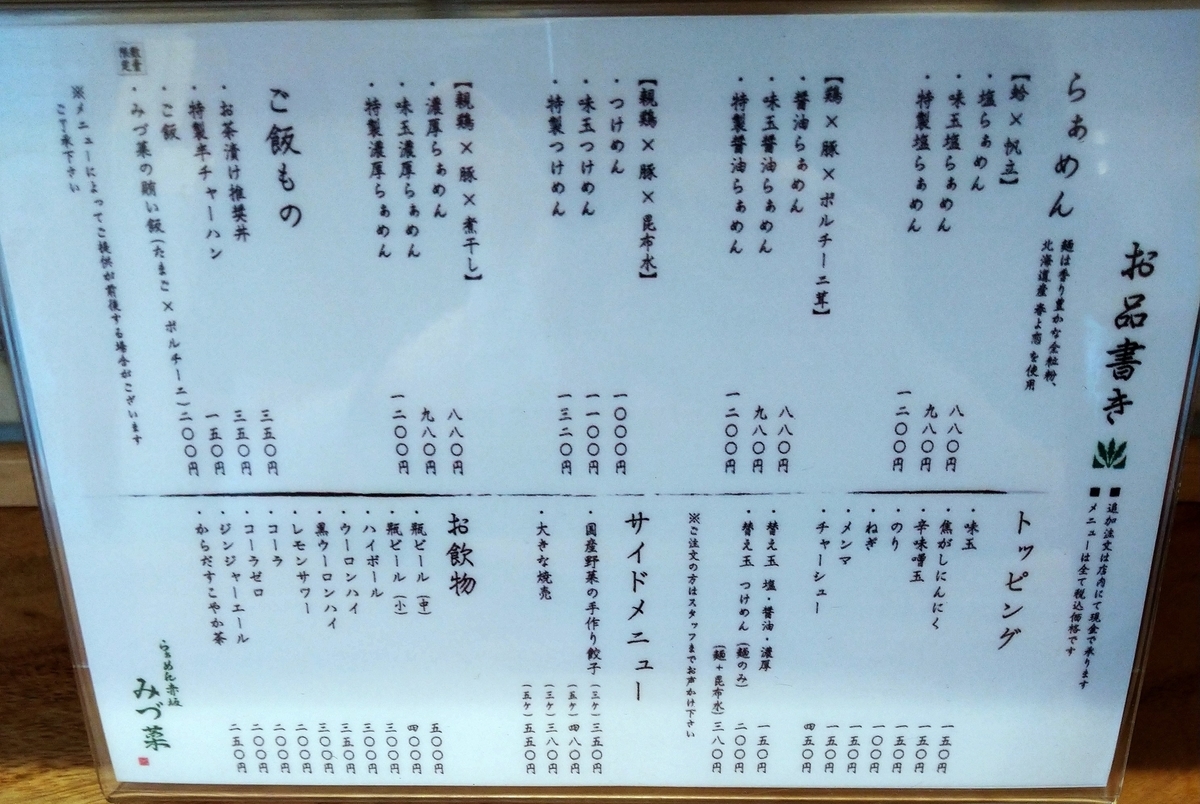 お品書き
■追加注文は店内にて現金で承ります
■メニューは全て税込価格です
らぁめん
麺は香り豊かな全粒粉、
北海道産 春よ恋 を使用
【蛤×帆立】
・塩らぁめん 八八〇円
・味玉塩らぁめん 九八〇円
・特製塩らぁめん 一二〇〇円
【鶏×豚×ポルチーニ茸】
・醤油らぁめん 八八〇円
・味玉醤油らぁめん 九八〇円
・特製醤油らぁめん 一二〇〇円
【親鶏×豚×昆布水】
・つけめん 一〇〇〇円
・味玉つけめん 一一〇〇円
・特製つけめん 一三二〇円
【親鶏×豚×煮干し】
・濃厚らぁめん 八八〇円
・味玉濃厚らぁめん 九八〇円
・特製濃厚らぁめん 一二〇〇円
ご飯もの
・お茶漬け推奨丼 三五〇円
・特製半チャーハン 三五〇円
・ご飯 一五〇円
数量限定
・みづ菜の賄い飯(たまご×ポルチーニ) 二〇〇円
※メニューによってご提供が前後する場合がございます
ご了承下さい
トッピング
・味玉 一五〇円
・焦がしにんにく 一五〇円
・辛味噌玉 一五〇円
・のり 一〇〇円
・ねぎ 一五〇円
・メンマ 一五〇円
・チャーシュー 四五〇円
・替え玉 塩・醤油・濃厚 一五〇円
・替え玉 つけめん (麺のみ) 二〇〇円
(麺+昆布水) 三八〇円
※ご注文の方はスタッフまでお声かけ下さい
サイドメニュー
・国産野菜の手作り餃子 (三ケ) 三五〇円
(五ケ) 四八〇円
・大きな焼売 (三ケ) 三八〇円
(五ケ) 五五〇円
お飲物
・瓶ビール (中) 五〇〇円
・瓶ビール (小) 四〇〇円
・ハイボール 三〇〇円
・ウーロンハイ 三〇〇円
・黒ウーロンハイ 三五〇円
・レモンサワー 三〇〇円
・コーラ 二〇〇円
・コーラゼロ 二〇〇円
・ジンジャーエール 二〇〇円
・からだすこやか茶 二五〇円
らぁめん赤坂
みづ菜